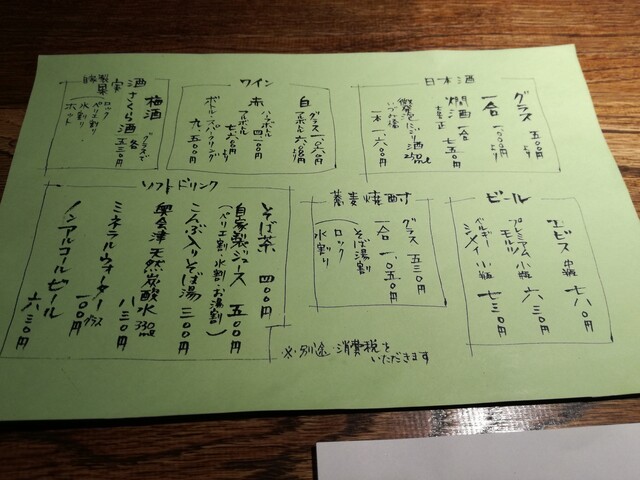 日本酒
グラス 五〇〇円より
一合 一〇〇〇円より
燗酒 一合 七五〇円
微発泡にごり酒
一本 一、六〇〇円
ワイン
白
グラス 一、〇〇〇円
赤
ハーフボトル 四、一〇〇円
フルボトル 七、六〇〇円より
ボトル・スパークリング 九、五〇〇円
自家製果実酒
梅酒
さくら酒
グラスで各 五三〇円
ロック
ペリエ割り
水割り
ホット
ビール
ヱビス 中瓶 七八〇円
プレミアムモルツ 小瓶 六三〇円
ベルギー シメイ 小瓶 七三〇円
蕎麦焼酎
グラス 五三〇円
一合 一、〇五〇円
そば湯割
ロック
水割り
ソフトドリンク
そば茶 四〇〇円
自家製ジュース 五〇〇円
(ペリエ割・水割・お湯割)
こんぶ入りそば湯 三〇〇円
奥会津天然炭酸水 330ml
ミネラルウォーター 八三〇円
グラス 一〇〇円
ノンアルコールビール 六三〇円
※別途 消費税を
いただきます